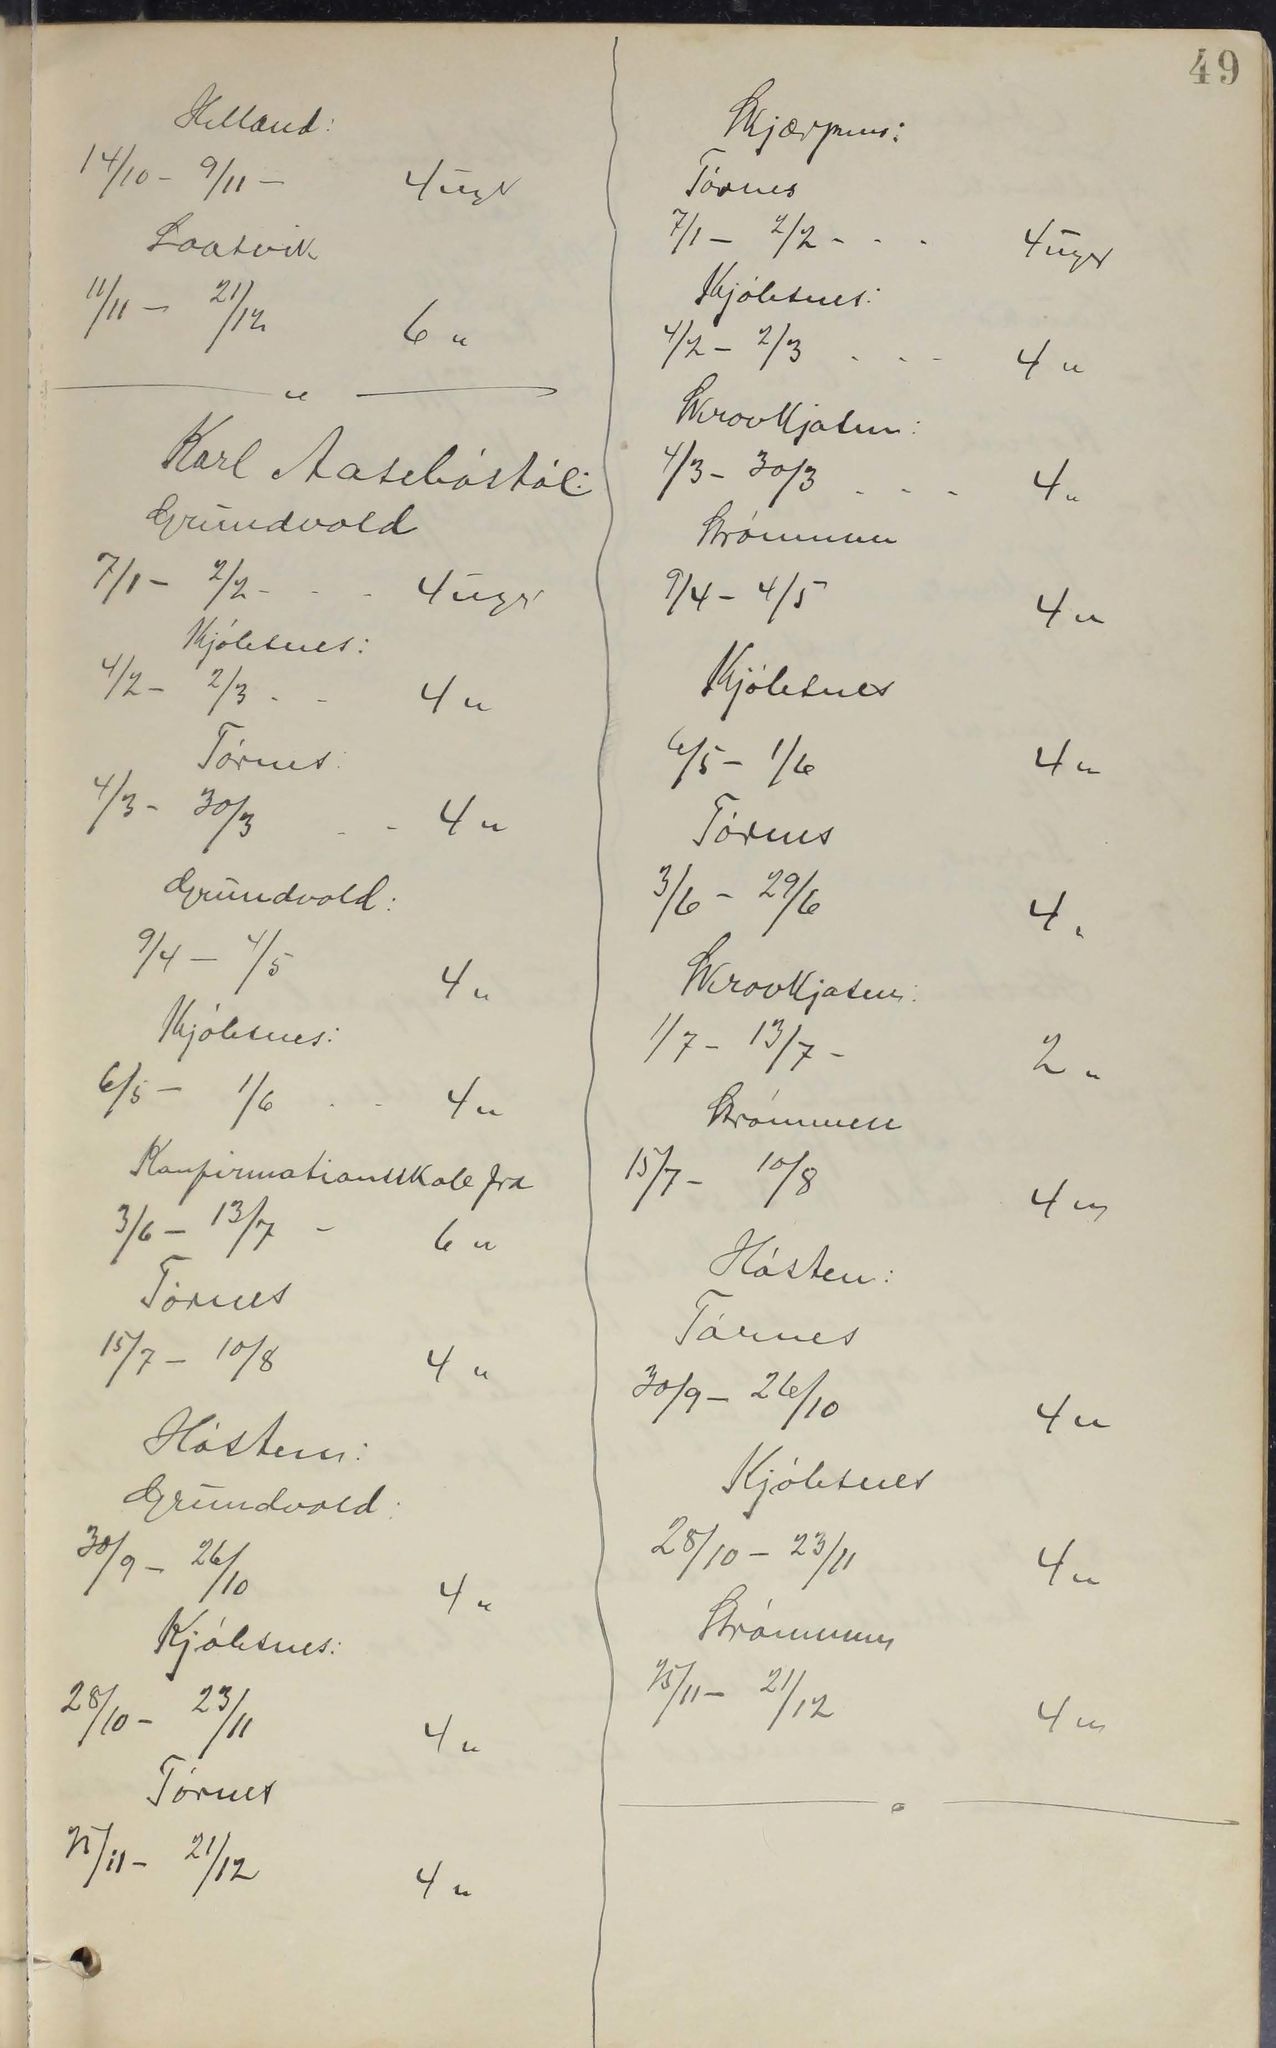 49
Helland:
14/10 - 9/11 - 4 uger
Laatvik
11/11 - 21/12 6 "
"
Karl Aasebøstøl:
Grundvold
7/1 - 2/2 - - - 4 uger
Kjölsnes:
4/2 - 2/3 - - 4 "
Törnes:
4/3 - 30/3 - - 4 "
Grundvold:
9/4 - 4/5 4 "
Kjölsnes:
6/5 - 1/6 - - 4 "
Konfirmationsskole fra
3/6 - 13/7 - 6 "
Törnes
15/7 - 10/8 4 "
Hösten:
Grundvold:
30/9 - 26/10 4 "
Kjölsnes:
28/10 - 23/11 4 "
Törnes
25/11 - 21/12 4 "
Törnes
7/1 - 2/2 - - - 4 uger
Kjölsnes:
4/2 - 2/3 - - - 4 "
Skrovkjosen:
4/3 - 30/3 - - - 4 "
Strömmen
9/4 - 4/5 4 "
Kjölsnes
6/5 - 1/6 4 "
Törnes
3/6 - 29/6 4 "
Skrovkjosen:
1/7 - 13/7 - 2 "
Strömmen
15/7 - 10/8 4 "
Hösten:
Törnes
30/9 - 26/10 4 "
Kjölsnes
28/10 - 23/11 4 "
Strömmen
25/11 - 21/12 4 "